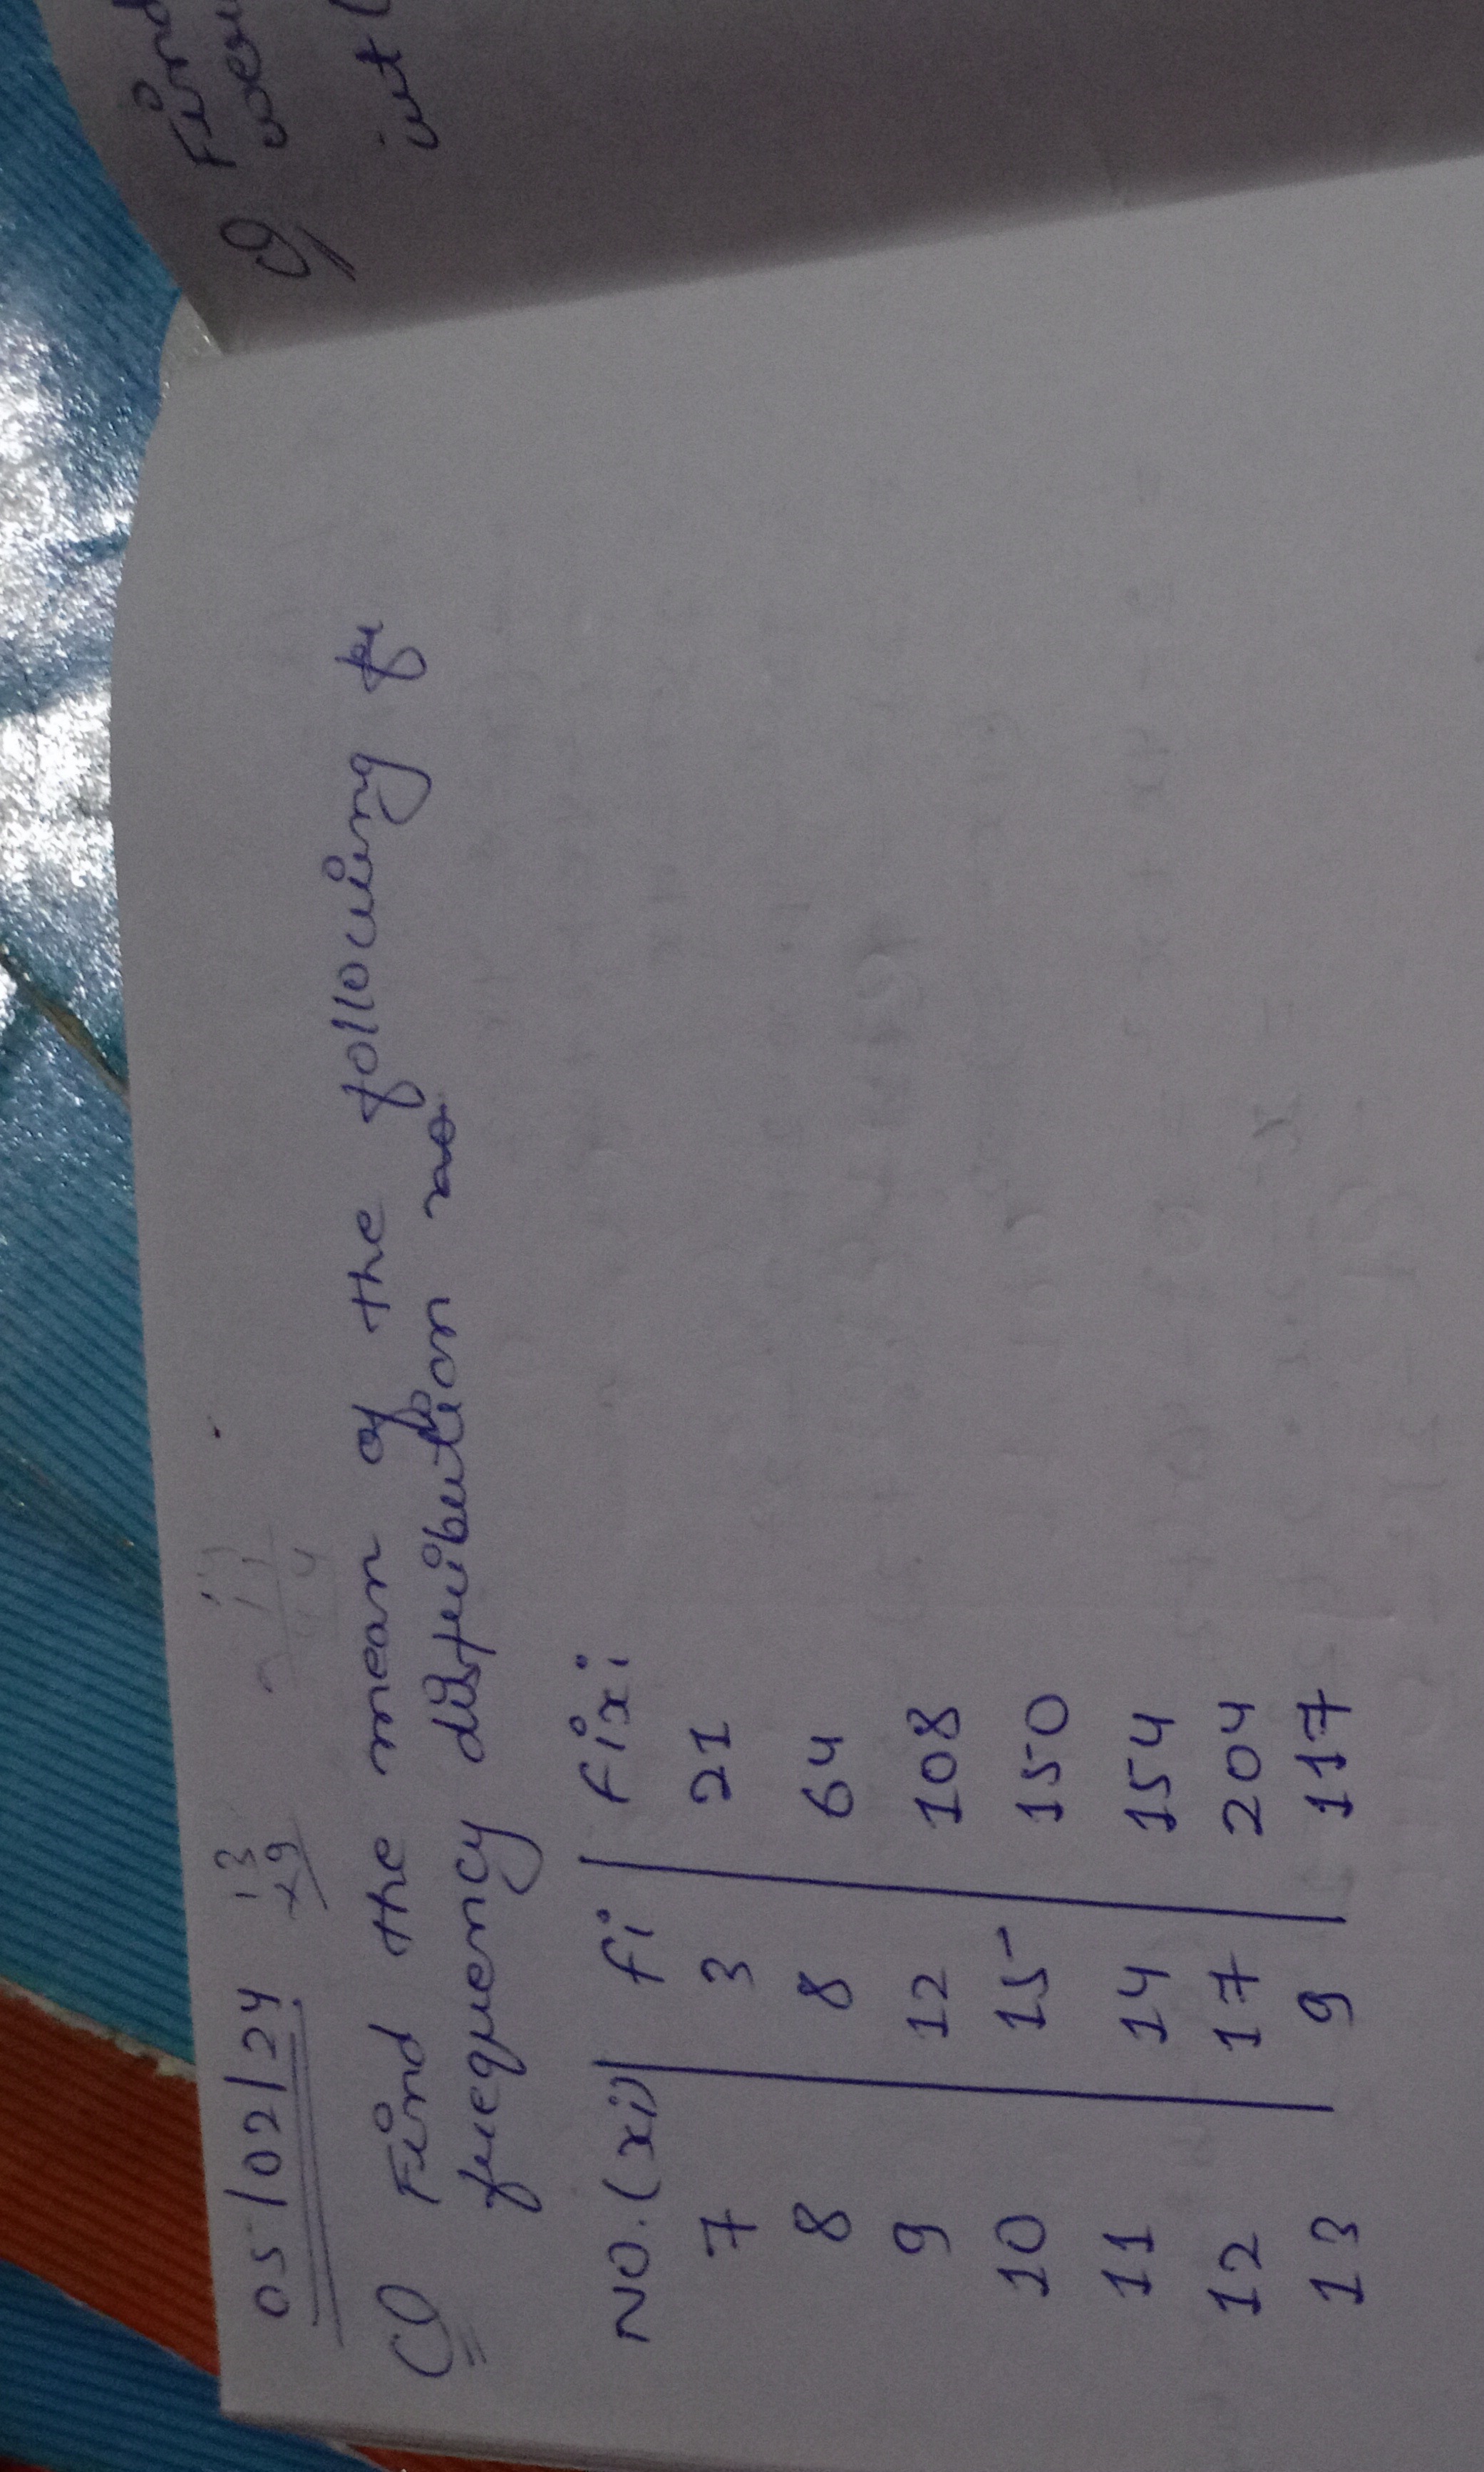 05/02/24
13
×9
Q Find the mean of the following
frequency distribution
NO.(xi) fi fixi
7 3 21
8 8 64
9 12 108
10 15 150
11 14 154
12 17 204
13 9 117
Q Find